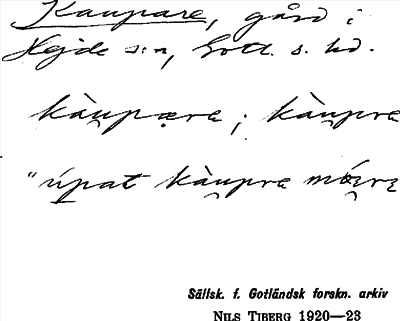 Kaupare, gård i
Hejde s:n, Gotl. s. hd.
kàu̯pæra; kàu̯pra
"úpat kàu̯pra
Sällsk. f. Gotländsk forskn. arkiv
NILS TIBERG 1920—23